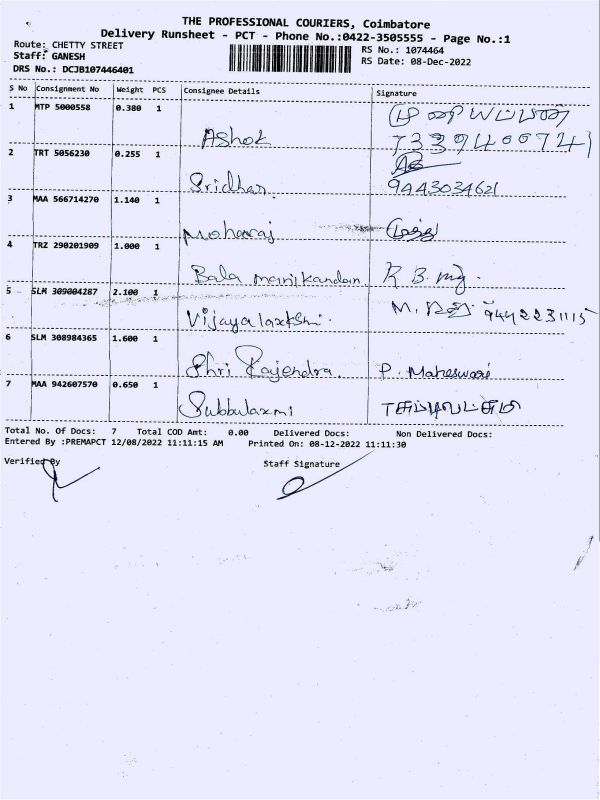 THE PROFESSIONAL COURIERS, Coimbatore
Delivery Runsheet - PCT - Phone No.:0422-3505555 - Page No.:1
Route: CHETTY STREET
RS No.: 1074464
Staff: GANESH
RS Date: 08-Dec-2022
DRS No.: DCJB107446401
S No Consignment No Weight PCS Consignee Details Signature
1 MTP 5000558 0.380 1 Ashok முனியப்பன்
2 TRT 5056230 0.255 1 Sridhar 9443034621
3 MAA 566714270 1.140 1 Mohanraj
4 TRZ 290201909 1.000 1 Bala manikandan
5 SLM 309004287 2.100 1 Vijayalaxkshmi 9442231115
6 SLM 308984365 1.600 1 Shri Rajendra. P. Maheswari
7 MAA 942607570 0.650 1 Subbulaxmi
Total No. Of Docs: 7 Total COD Amt: 0.00 Delivered Docs: Non Delivered Docs:
Entered By :PREMAPCT 12/08/2022 11:11:15 AM Printed On: 08-12-2022 11:11:30
Verified By Staff Signature